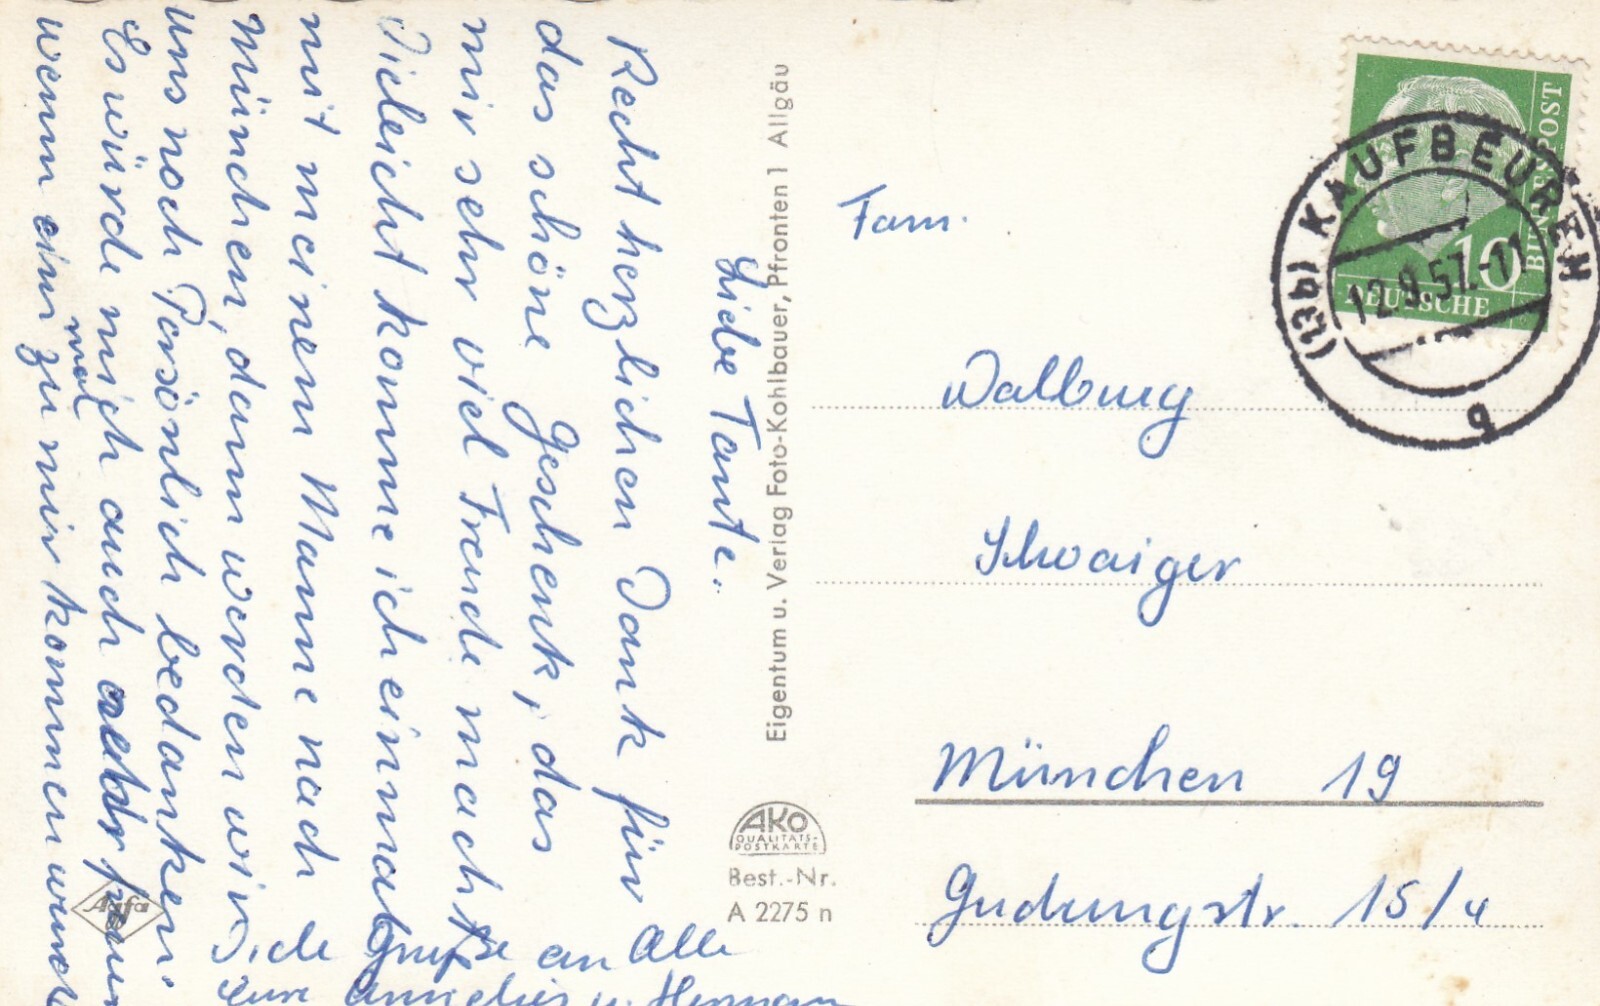 Liebe Tante.
Recht herzlichen Dank für
das schöne Geschenk, das
mir sehr viel Freude macht
Vieleicht komme ich einmal
mit meinem Manne nach
München, dann werden wir
uns noch Persönlich bedanken.
Es würde mich auch
wenn ihr mal zu mir kommen
Viele Grüße an Alle
Eure Annelies u. Hermann
Eigentum u. Verlag Foto-Kohlbauer, Pfronten 1 Allgäu
AKO
QUALITÄTS-
POSTKARTE
Best.-Nr.
A 2275 n
Agfa
DEUTSCHE
BUNDESPOST
10
(13b) KAUFBEUREN
12.9.57.-11
Fam.
Walburg
Schwaiger
München 19
15/4